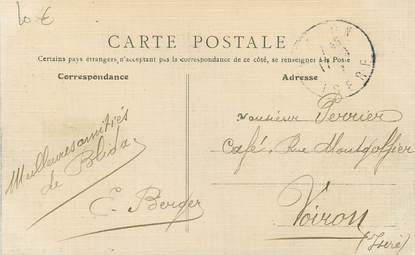 10 €
CARTE POSTALE
Certains pays étrangers n'acceptant pas la correspondance de ce côté, se renseigner à la Poste
Correspondance
Adresse
Meilleures amitiés
de Blida
E. Berger
Monsieur Perrier
Café, Rue Montgolfier
Voiron
(Isère)
ISERE